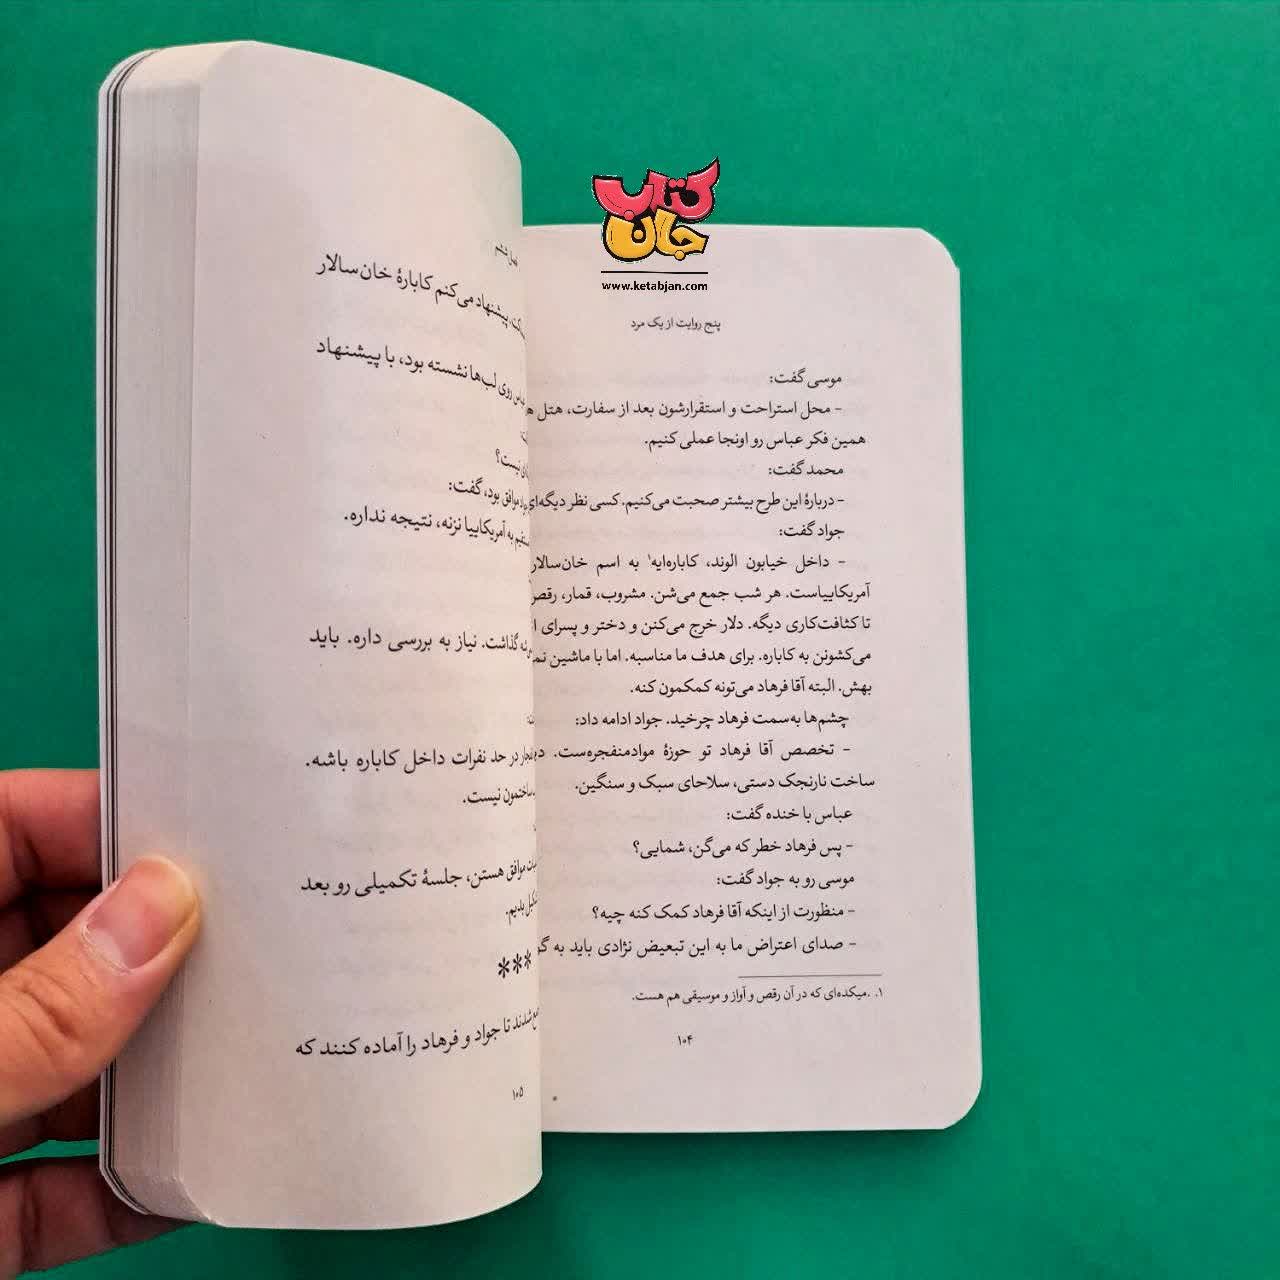 کتاب
جان
www.ketabjan.com
پنج روایت از یک مرد
موسی گفت:
- محل استراحت و استقرارشون بعد از سفارت، هتل
همین فکر عباس رو اونجا عملی کنیم.
محمد گفت:
- دربارهٔ این طرح بیشتر صحبت می‌کنیم. کسی نظر دیگه‌ای
جواد گفت:
- داخل خیابون الوند، کاباره‌ایه۱ به اسم خان‌سالار
آمریکاییاست. هر شب جمع می‌شن. مشروب، قمار، رقص
تا کثافت‌کاری دیگه. دلار خرج می‌کنن و دختر و پسرای
می‌کشونن به کاباره. برای هدف ما مناسبه. اما با ماشین
بهش. البته آقا فرهاد می‌تونه کمکمون کنه.
چشم‌ها به‌سمت فرهاد چرخید. جواد ادامه داد:
- تخصص آقا فرهاد تو حوزهٔ موادمنفجره‌ست.
ساخت نارنجک دستی، سلاحای سبک و سنگین.
عباس با خنده گفت:
- پس فرهاد خطر که می‌گن، شمایی؟
موسی رو به جواد گفت:
- منظورت از اینکه آقا فرهاد کمک کنه چیه؟
- صدای اعتراض ما به این تبعیض نژادی باید به
۱. .میکده‌ای که در آن رقص و آواز و موسیقی هم هست.
۱۰۴
فصل ششم
پیشنهاد می‌کنم کابارهٔ خان‌سالار
روی لب‌ها نشسته بود، با پیشنهاد
نیست؟
موافق بود، گفت:
به آمریکاییا نزنه، نتیجه نداره.
گذاشت. نیاز به بررسی داره. باید
در حد نفرات داخل کاباره باشه.
ساختمون نیست.
موافق هستن، جلسهٔ تکمیلی رو بعد
بدیم.
***
شدند تا جواد و فرهاد را آماده کنند که
۱۰۵